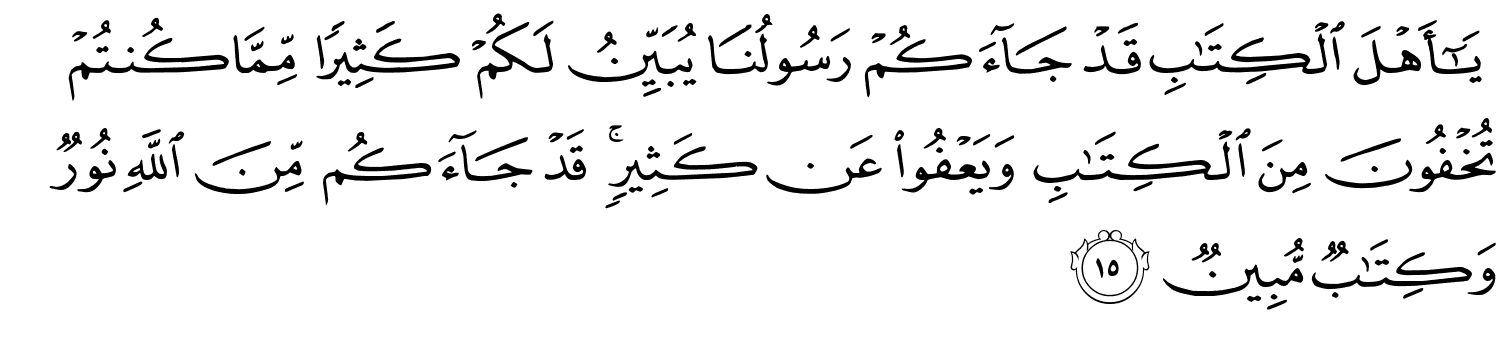 يَـٰٓأَهۡلَ ٱلۡكِتَـٰبِ قَدۡ جَآءَكُمۡ رَسُولُنَا يُبَيِّنُ لَكُمۡ كَثِيرًا مِّمَّا كُنتُمۡ
تُخۡفُونَ مِنَ ٱلۡكِتَـٰبِ وَيَعۡفُواْ عَن كَثِيرٍۚ قَدۡ جَآءَكُم مِّنَ ٱللَّهِ نُورٌ
وَكِتَـٰبٌ مُّبِينٌ ١٥